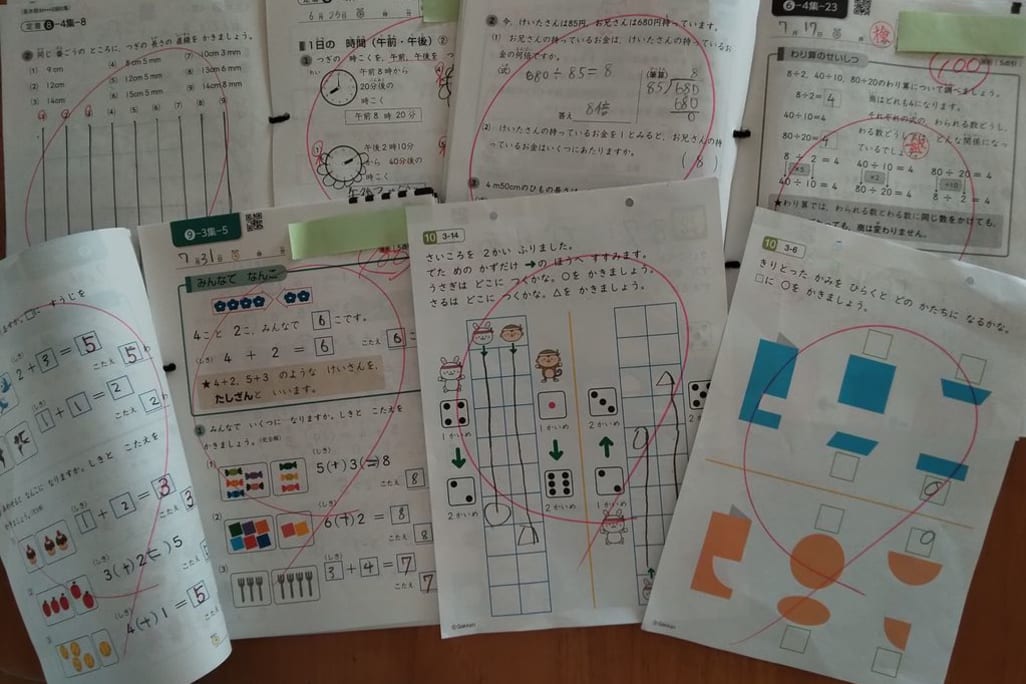 定着 8-4集-8
② 同じ番ごうのところに、つぎの長さの直線をかきましょう。
(1) 9cm
(2) 12cm
(3) 14cm
(4) 8cm 5mm
(5) 12cm 5mm
(6) 15cm 5mm
(7) 10cm 3mm
(8) 13cm 6mm
(9) 14cm 8mm
6月29日
1日の 時間(午前・午後)②
午前8時から
20分後の
時こく
午前8時20分
午後2時10分
から 40分後の
時こく
② 今、けいたさんは85円、お兄さんは680円持っています。
(1) お兄さんの持っているお金は、けいたさんの持っているお
金の何倍ですか。
(式) 680÷85=8
(筆算)
8
85/680
680
0
答え 8倍
(2) けいたさんの持っているお金を1とみると、お兄さんの持
っているお金はいくつにあたりますか。
(8)
4m50cmのひもの長さは
6-4集-23
7月17日
100
わり算のせいしつ
8÷2、40÷10、80÷20のわり算について調べましょう。
8÷2=4
商はどれも4になります。
40÷10=4
80÷20=4
8÷2=4
40÷10=4
40÷10=4
80÷20=4
80÷20=4
8÷2=4
×5
×2
÷10
★わり算では、わられる数とわる数に同じ数をかけても、
商は変わりません。
2+3=5
こたえ 5
1+1=2
こたえ 2
1+2=3
こたえ 3
3(+)2(=)5
4(+)1=5
9-3集-5
7月31日
みんなで なんこ
4こと 2こ、みんなで 6 こです。
(しき) 4+2=6
こたえ 6
★4+2、5+3 のような けいさんを、
たしざんと いいます。
① みんなで いくつに なりますか。しきと こたえを
かきましょう。
(1) (しき) 5(+)3(=)8
8
(2) (しき) 6(+)2=8
こたえ 8
(3) (しき) 3+4=7
こたえ 7
10 3-14
さいころを 2かい ふりました。
でた めの かずだけ ➡の ほうへ すすみます。
うさぎは どこに つくかな。○を かきましょう。
さるは どこに つくかな。△を かきましょう。
1かいめ
2かいめ
1かいめ
2かいめ
2かいめ
1かいめ
2かいめ
©Gakken
10 3-6
きりとった かみを ひらくと どの かたちに なるかな。
□に ○を かきましょう。
©Gakken